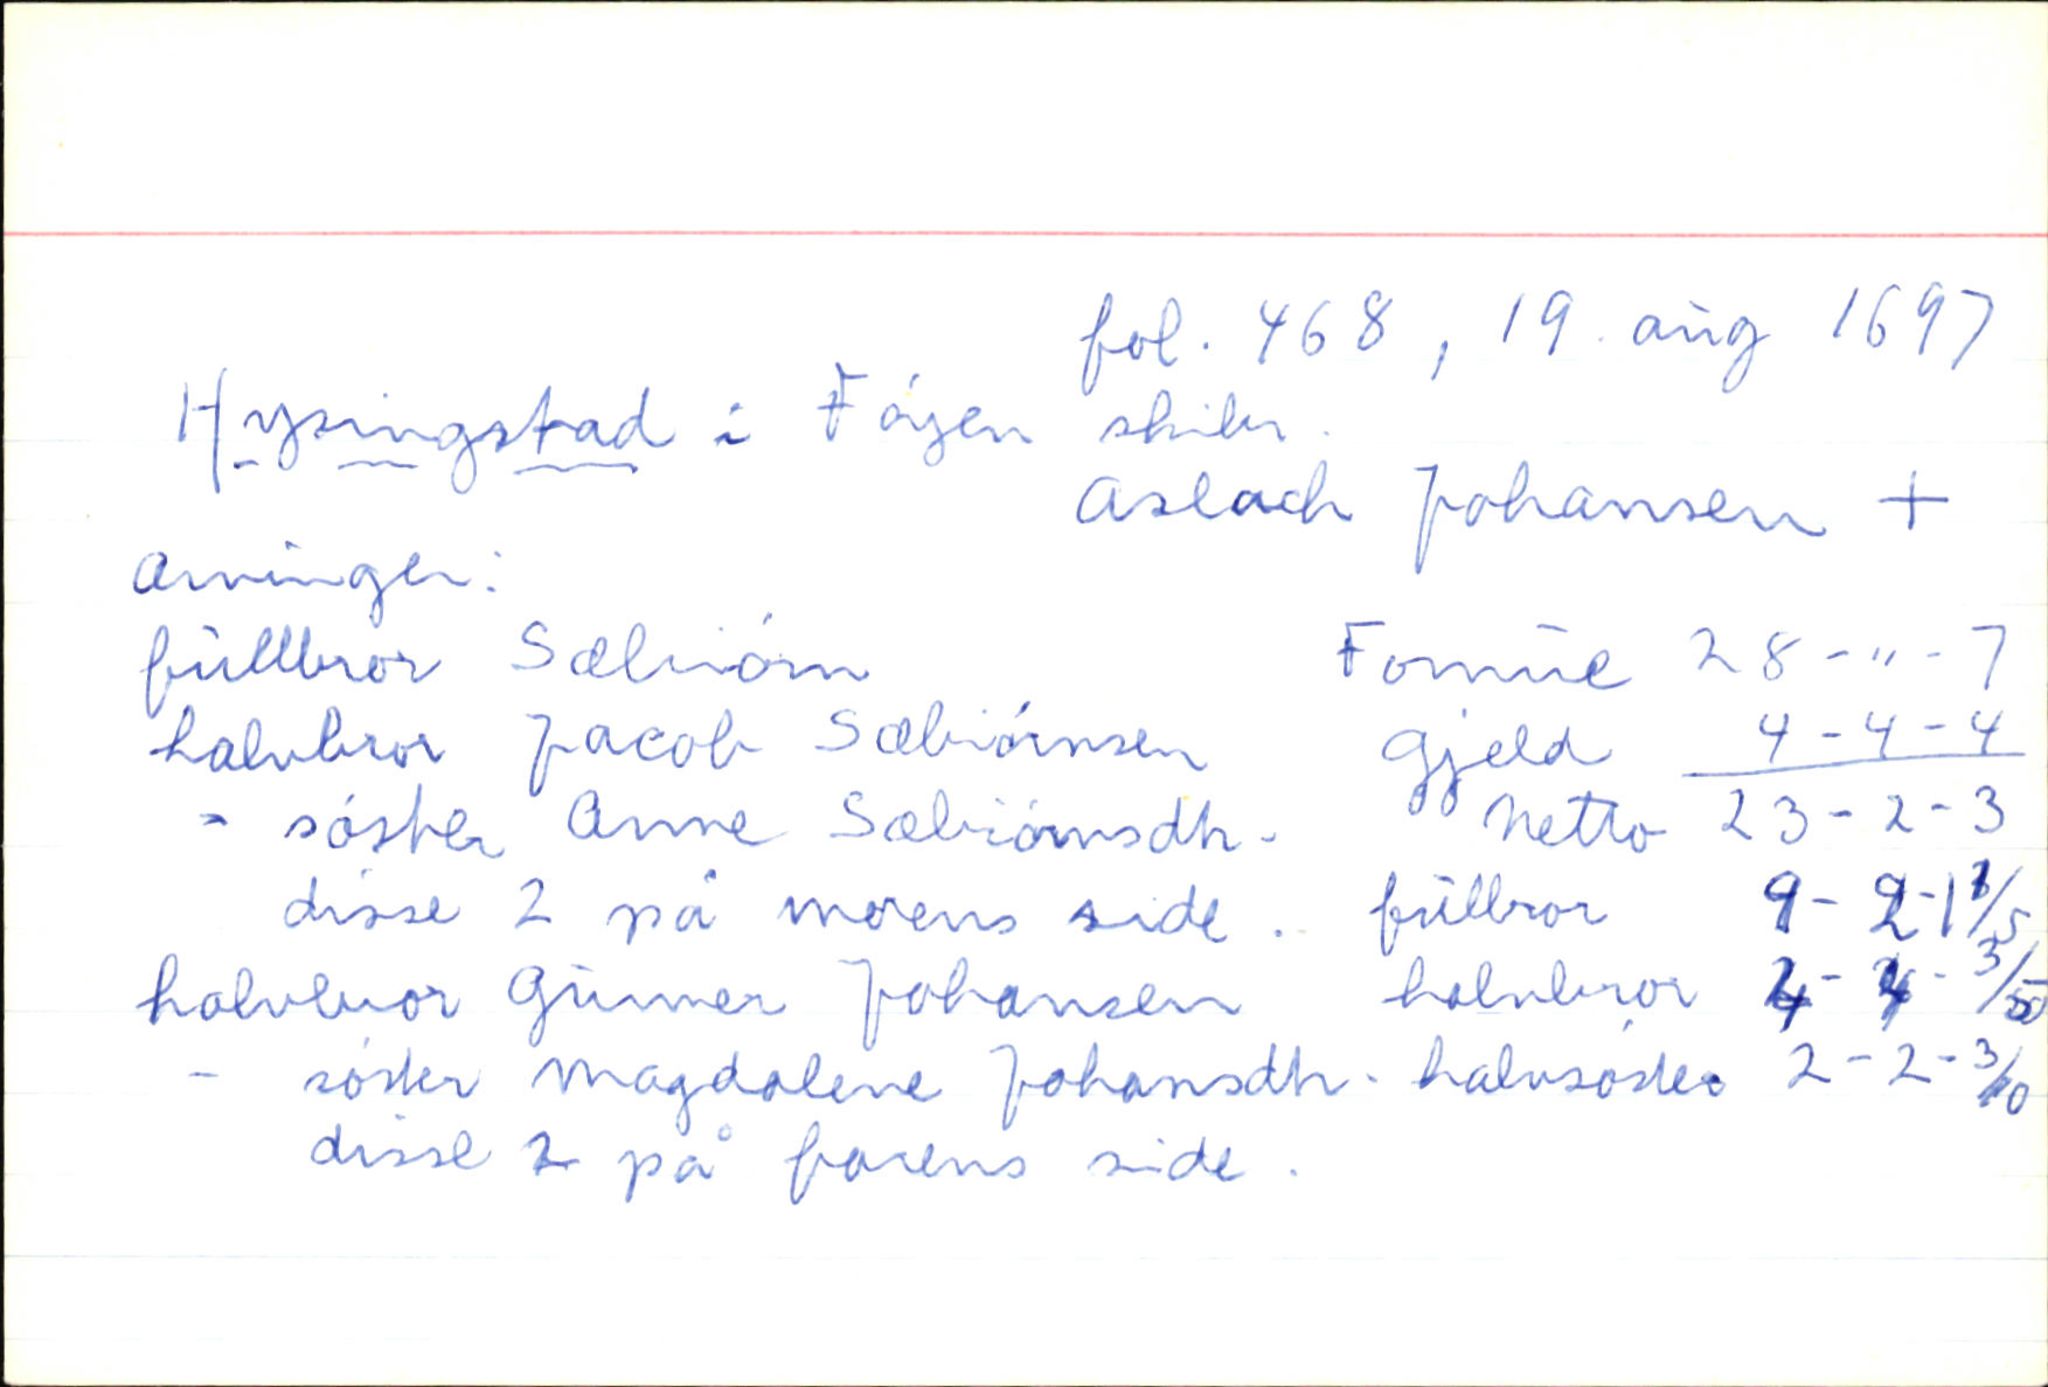 fol. 468, 19. aug 1697
Hysingstad i Föyen skibr.
Aslach Johansen +
Arvinger:
fullbror Sæbiörn Formue 28 - " - 7
halvbror Jacob Sæbiörnsen Gjeld 4 - 4 - 4
" söster Anne Sæbiörnsdtr. Netto 23 - 2 - 3
disse 2 på morens side. fullbror 9 - 2 - 1 1/5
halvbror Gunner Johansen halvbror 4 - 4 - 3/5
- söster Magdalene Johansdtr. halvsöster 2 - 2 - 3/10
disse 2 på farens side.